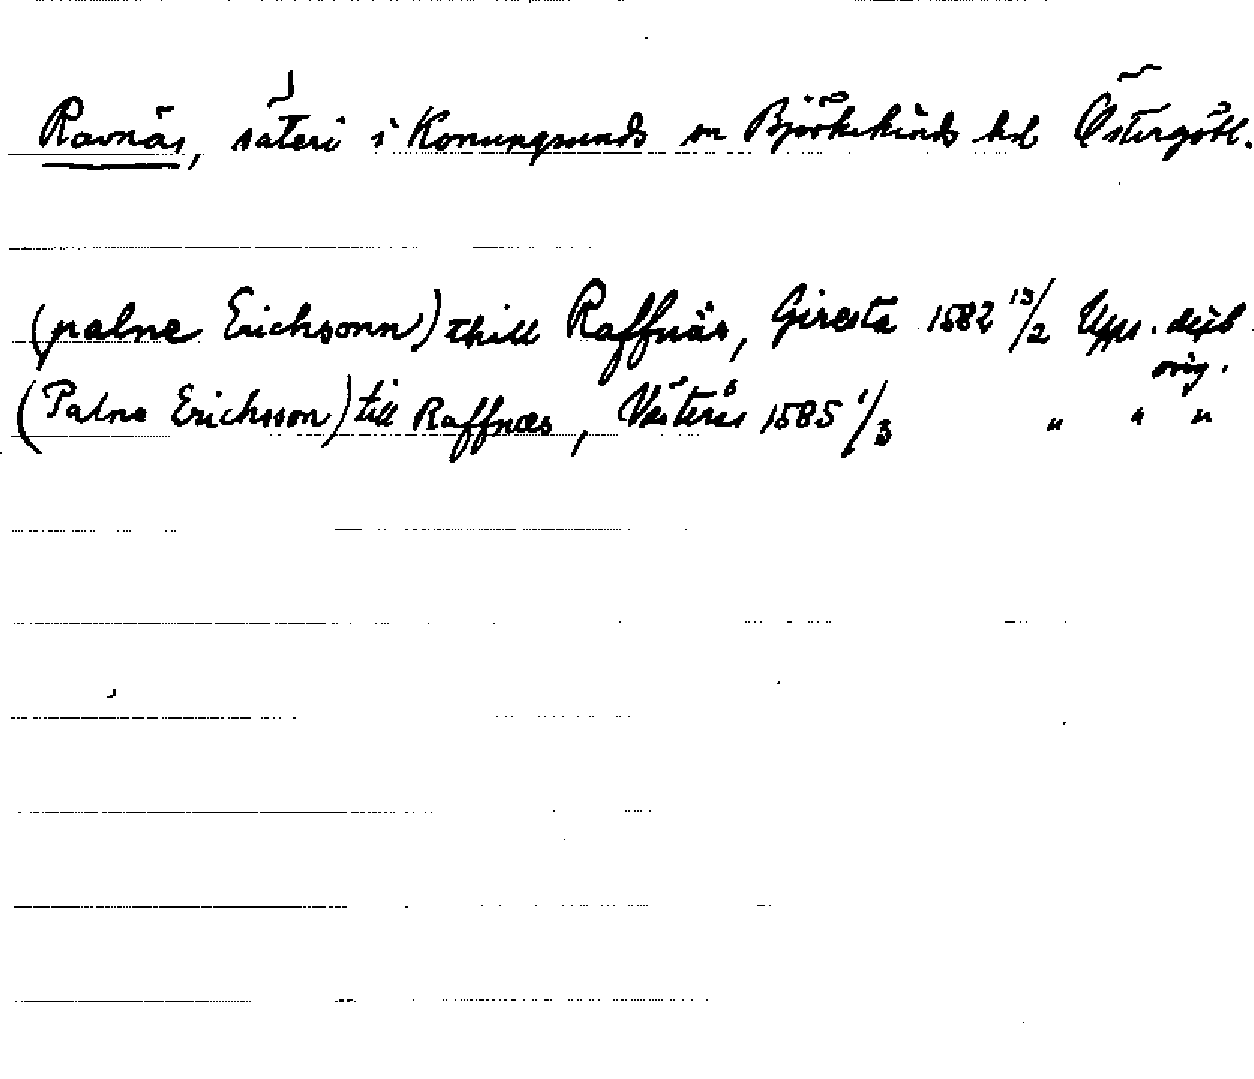 Ravnäs, säteri i Konungsunds sn Björkekinds hd Östergötl.
(palne Erichsonn) thill Raffnäs, Giresta 1582 13/2 Upps. dipl.
orig.
(Palne Erichsson) till Raffnæs, Västerås 1585 1/3 " " "